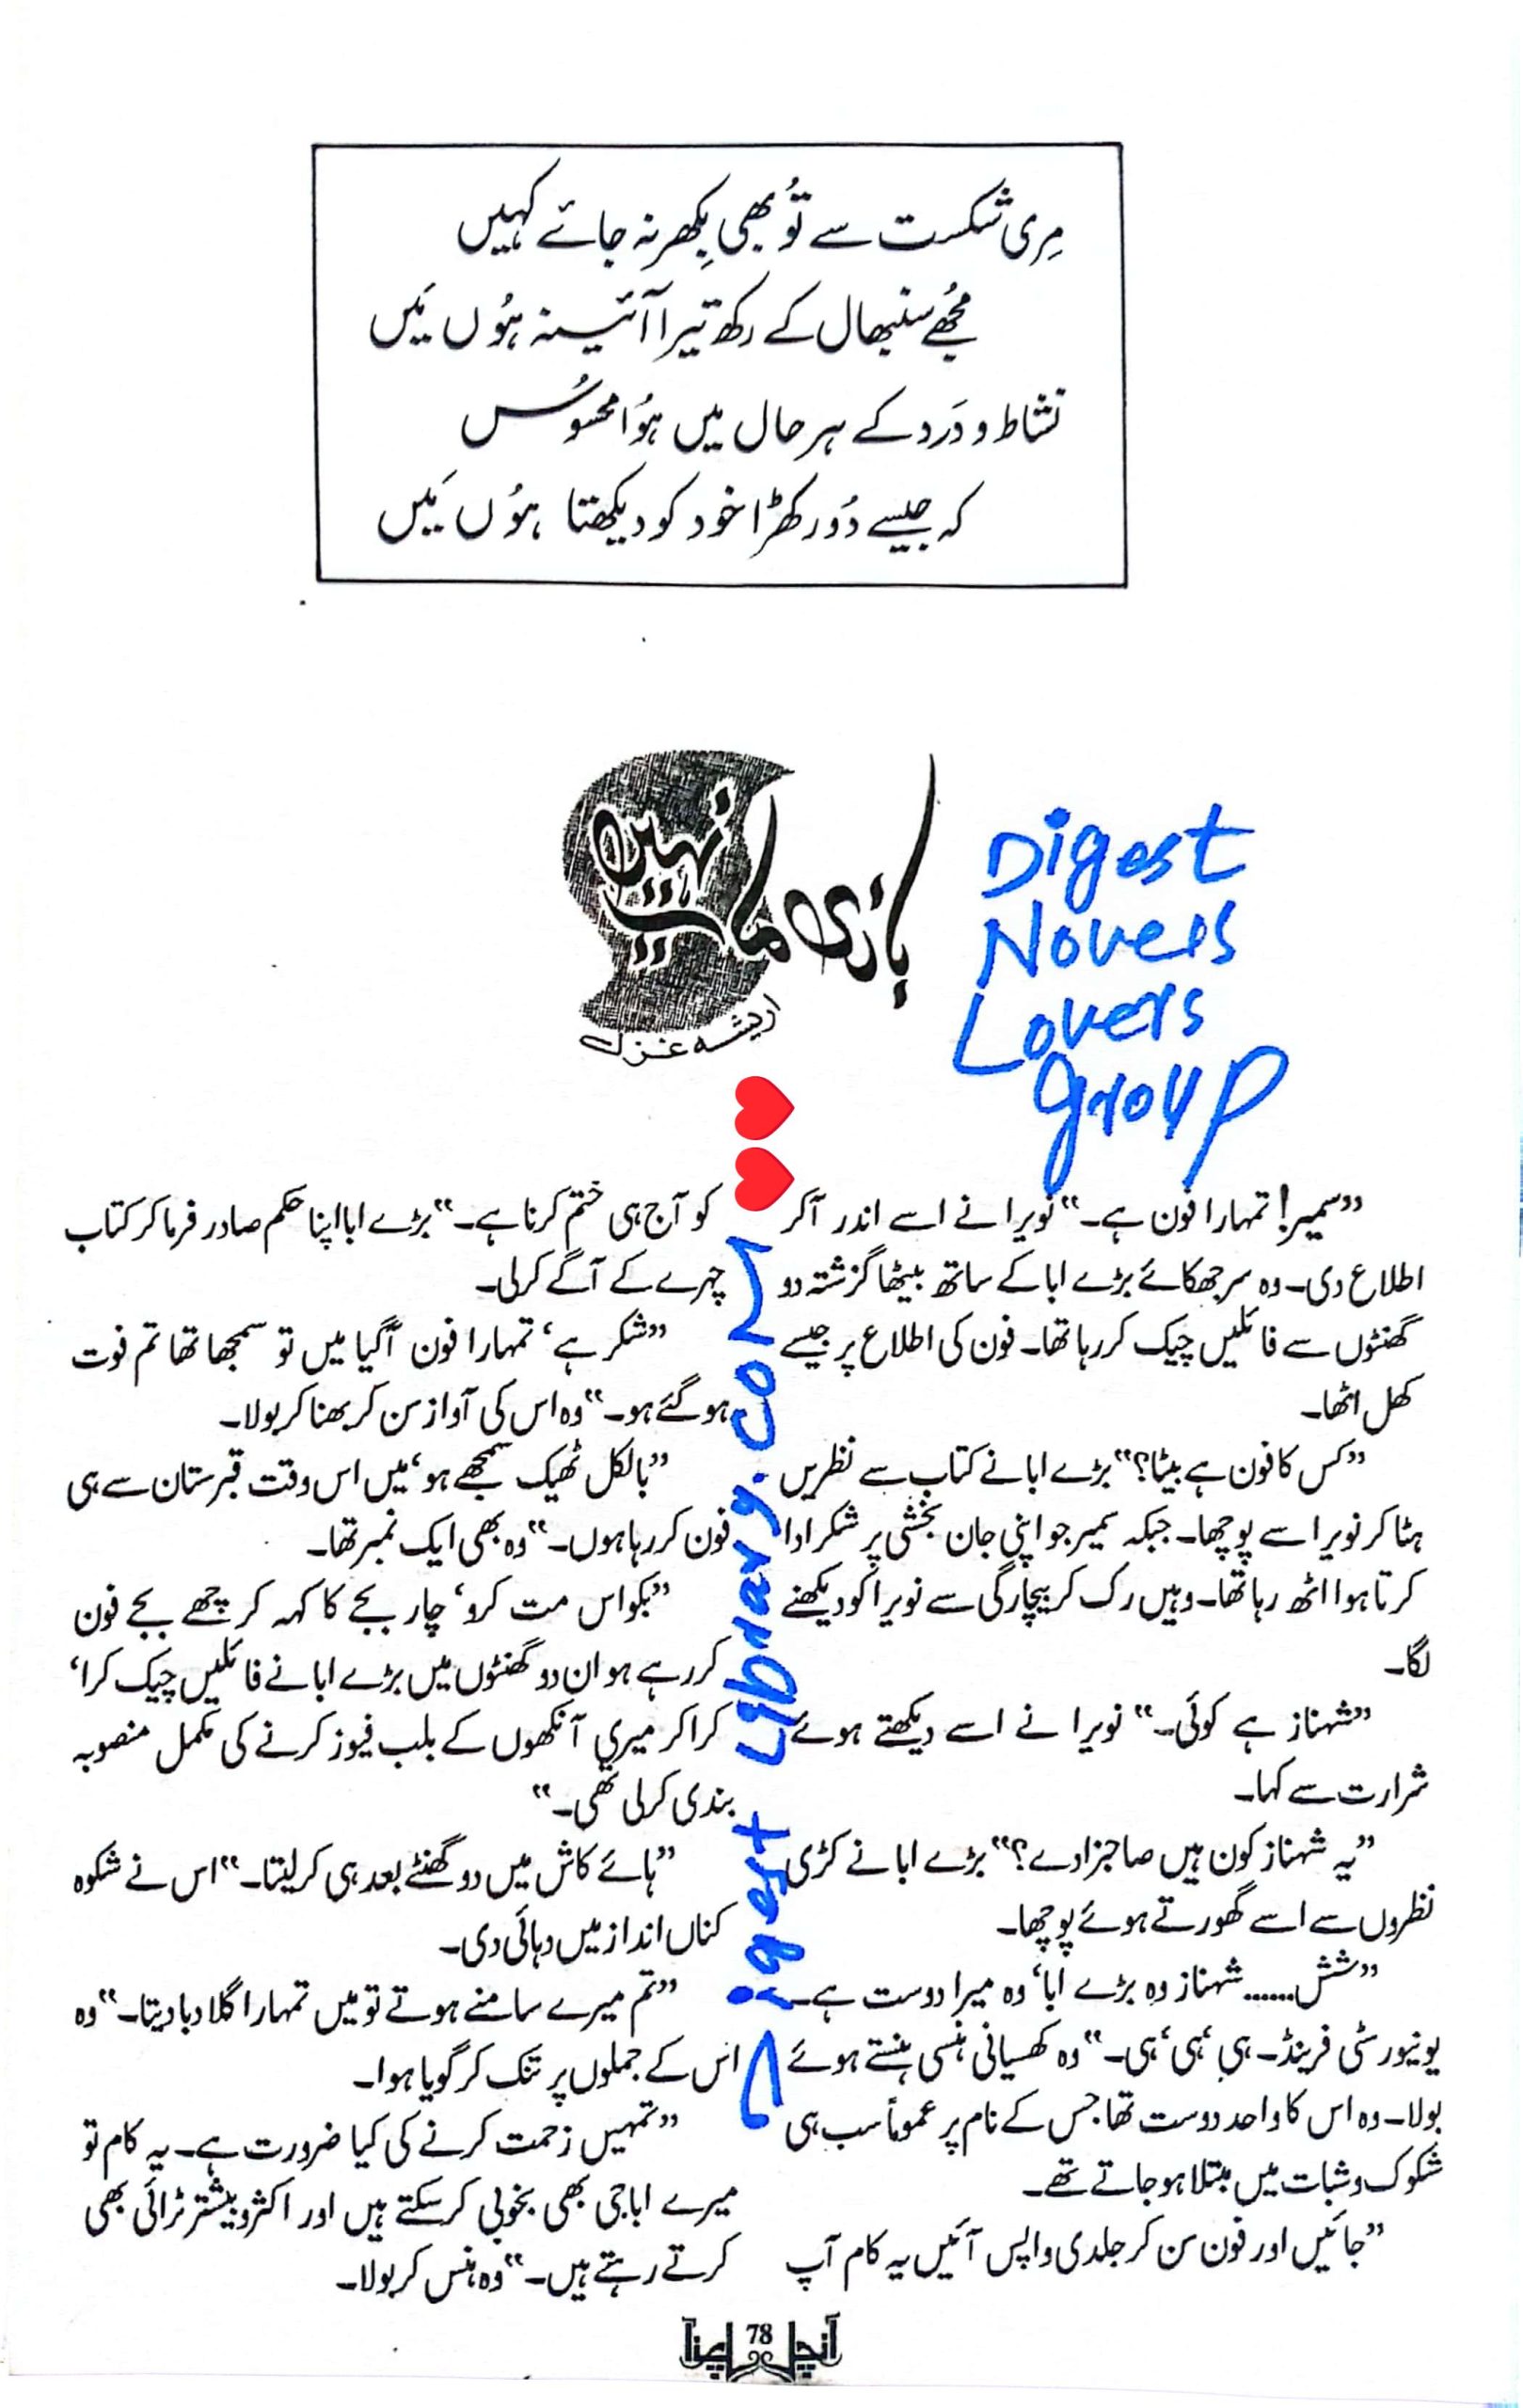 مِری شکست سے تُو بھی بِکھر نہ جائے کہیں
مُجھے سنبھال کے رکھ تیرا آئینہ ہُوں مَیں
نشاط و دَرد کے ہر حال میں ہُوا محسُوس
کہ جیسے دُور کھڑا خود کو دیکھتا ہُوں مَیں
بازی مات نہیں
اریشہ غزل
Digest
Novels
Lovers
group
Digest Library.com
”سمیر! تمہارا فون ہے۔“ نویرا نے اسے اندر آکر
اطلاع دی۔ وہ سر جھکائے بڑے ابا کے ساتھ بیٹھا گزشتہ دو
گھنٹوں سے فائلیں چیک کررہا تھا۔ فون کی اطلاع پر جیسے
کھل اٹھا۔
”کس کا فون ہے بیٹا؟“ بڑے ابا نے کتاب سے نظریں
ہٹا کر نویرا سے پوچھا۔ جبکہ سمیر جو اپنی جان بخشی پر شکر ادا
کرتا ہوا اٹھ رہا تھا۔ وہیں رک کر بیچارگی سے نویرا کو دیکھنے
لگا۔
”شہناز ہے کوئی۔“ نویرا نے اسے دیکھتے ہوئے
شرارت سے کہا۔
”یہ شہناز کون ہیں صاحبزادے؟“ بڑے ابا نے کڑی
نظروں سے اسے گھورتے ہوئے پوچھا۔
”شش...... شہناز وہ بڑے ابا‘ وہ میرا دوست ہے۔
یونیورسٹی فرینڈ۔ ہی‘ ہی‘ ہی۔“ وہ کھسیانی ہنسی ہنستے ہوئے
بولا۔ وہ اس کا واحد دوست تھا جس کے نام پر عموماً سب ہی
شکوک و شبات میں مبتلا ہوجاتے تھے۔
”جائیں اور فون سن کر جلدی واپس آئیں یہ کام آپ
کو آج ہی ختم کرنا ہے۔“ بڑے ابا اپنا حکم صادر فرما کر کتاب
چہرے کے آگے کرلی۔
”شکر ہے‘ تمہارا فون آگیا میں تو سمجھا تھا تم فوت
ہوگئے ہو۔“ وہ اس کی آواز سن کر بھنا کر بولا۔
”بالکل ٹھیک سمجھے ہو‘ میں اس وقت قبرستان سے ہی
فون کررہا ہوں۔“ وہ بھی ایک نمبر تھا۔
”بکواس مت کرو‘ چار بجے کا کہہ کر چھے بجے فون
کررہے ہو ان دو گھنٹوں میں بڑے ابا نے فائلیں چیک کرا‘
کرا کر میری آنکھوں کے بلب فیوز کرنے کی مکمل منصوبہ
بندی کرلی تھی۔“
”ہائے کاش میں دو گھنٹے بعد ہی کرلیتا۔“ اس نے شکوہ
کناں انداز میں دہائی دی۔
”تم میرے سامنے ہوتے تو میں تمہارا گلا دبا دیتا۔“ وہ
اس کے جملوں پر تنک کر گویا ہوا۔
”تمہیں زحمت کرنے کی کیا ضرورت ہے۔ یہ کام تو
میرے اباجی بھی بخوبی کرسکتے ہیں اور اکثر و بیشتر ٹرائی بھی
کرتے رہتے ہیں۔“ وہ ہنس کر بولا۔
آنچل 78